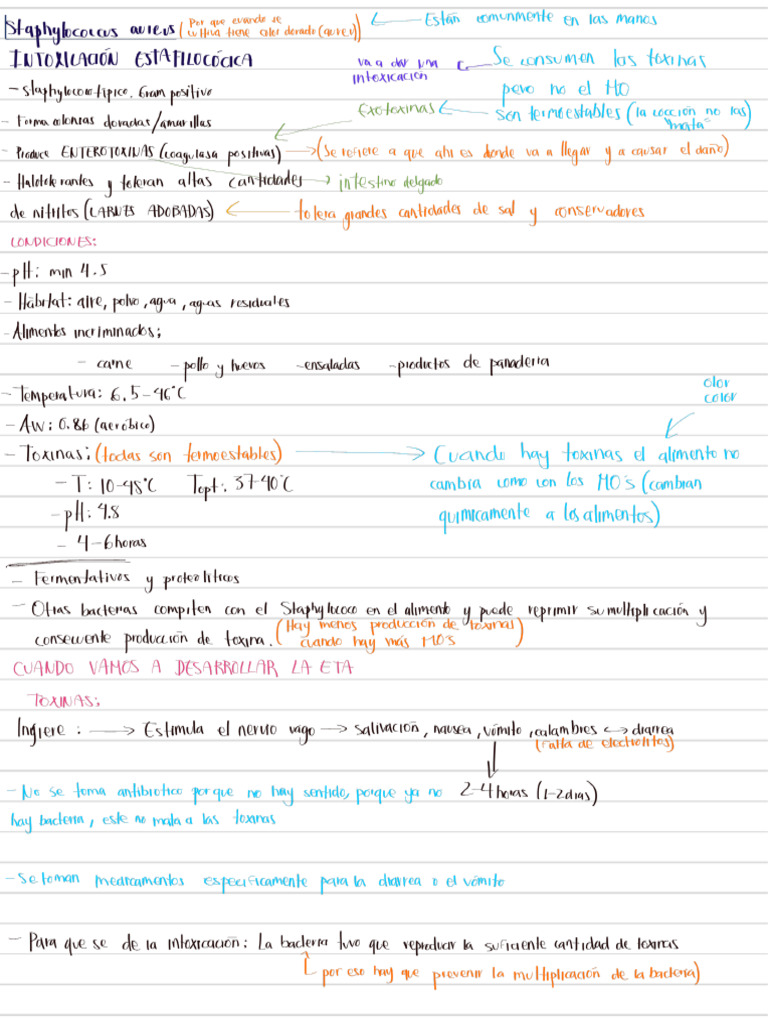 Staphylococcus aureus (Por que cuando se cultiva tiene color dorado (aureu)) ← Están comunmente en las manos
INTOXICACIÓN ESTAFILOCÓCICA va a dar una intoxicación Se consumen las toxinas
pero no el MO
- Staphylococo típico. Gram positivo
Exotoxinas ← son termoestables (la cocción no las "mata")
- Forma colonias doradas/amarillas
- Produce ENTEROTOXINAS (coagulasa positivas) → (Se refiere a que ahí es donde va a llegar y a causar el daño)
- Halotolerantes y toleran altas cantidades → intestino delgado
de nitritos (CARNES ADOBADAS) ← tolera grandes cantidades de sal y conservadores
CONDICIONES:
- pH: min 4.5
- Hábitat: aire, polvo, agua, aguas residuales
- Alimentos incriminados:
- carne - pollo y huevos - ensaladas - productos de panadería
- Temperatura: 6.5-46°C
olor
color
- AW: 0.86 (aeróbico)
- Toxinas: (todas son termoestables) → Cuando hay toxinas el alimento no
cambia como con los MO's (cambian
químicamente a los alimentos)
- T: 10-48°C Topt: 37-40°C
- pH: 4.8
- 4-6 horas
- Fermentativos y proteolíticos
- Otras bacterias compiten con el Staphylococo en el alimento y puede reprimir su multiplicación y
consecuente producción de toxina. (Hay menos producción de toxinas cuando hay más MO's)
CUANDO VAMOS A DESARROLLAR LA ETA
TOXINAS:
Ingiere : → Estimula el nervio vago → salivación, nausea, vómito, calambres ↔ diarrea
(Falta de electrolitos)
- No se toma antibiótico porque no hay sentido, porque ya no 2-4 horas (1-2 días)
hay bacteria, este no mata a las toxinas
- Se toman medicamentos específicamente para la diarrea o el vómito
- Para que se de la intoxicación: La bacteria tuvo que reproducir la suficiente cantidad de toxinas
por eso hay que prevenir la multiplicación de la bacteria)